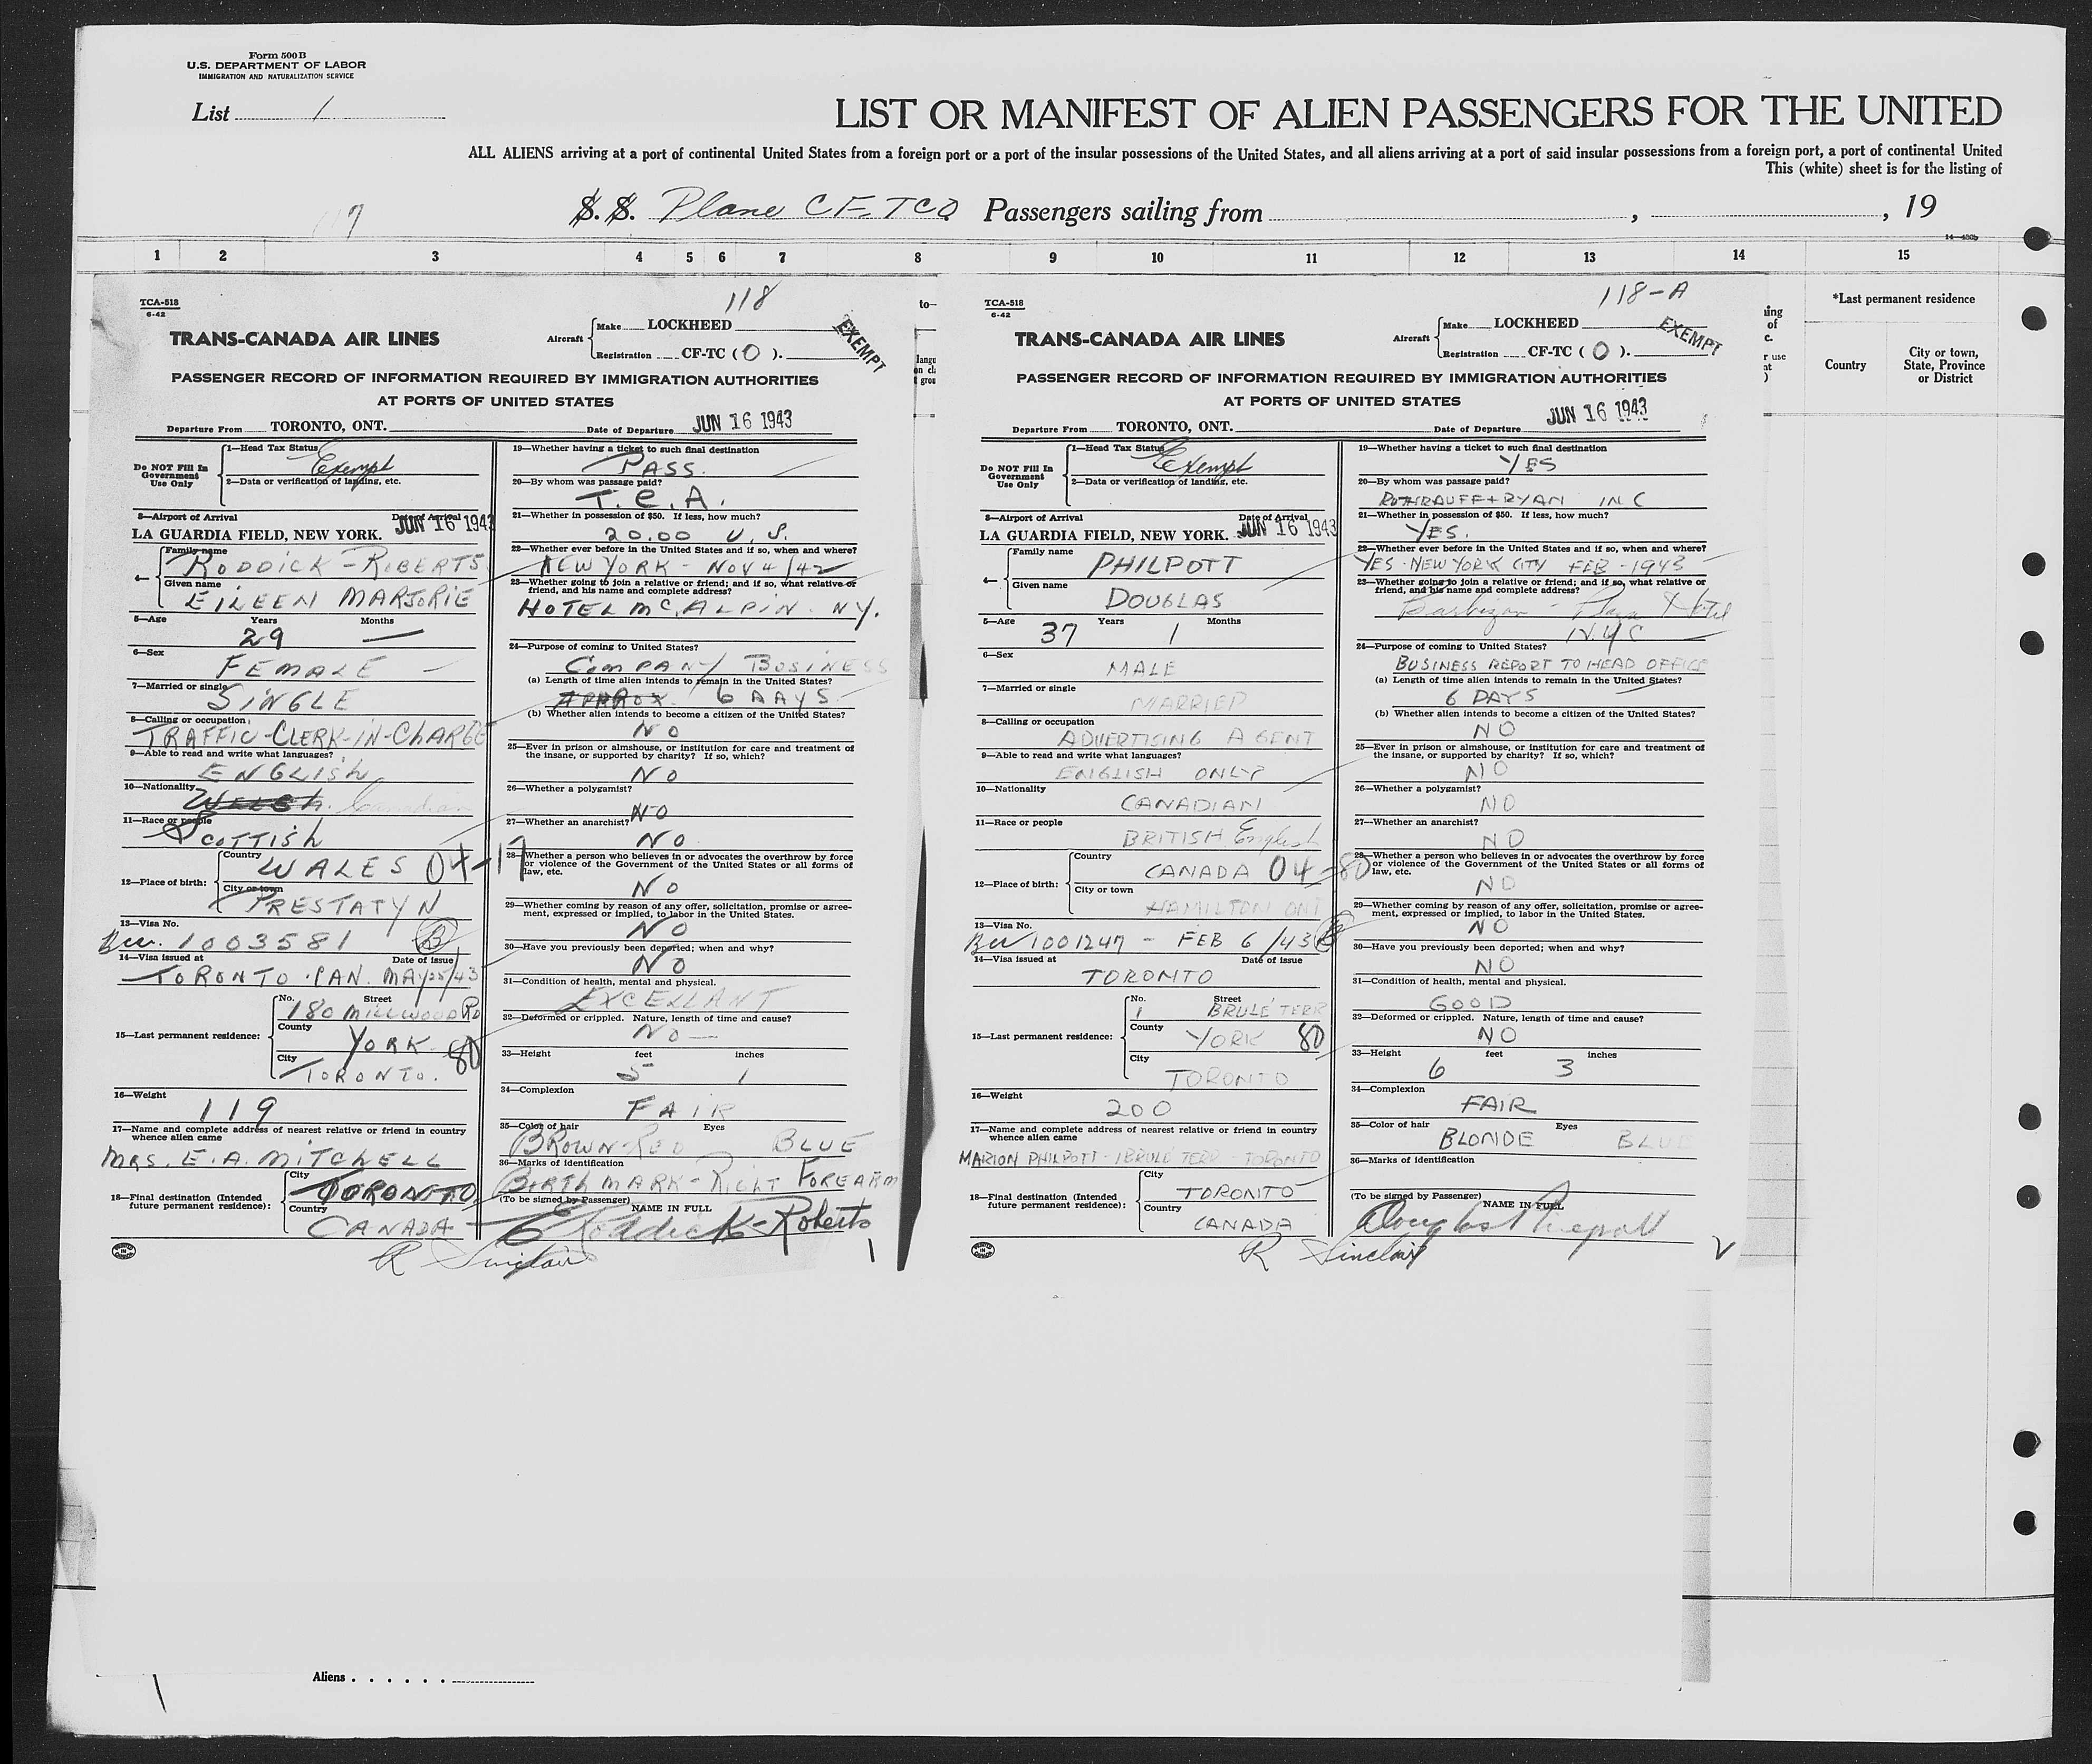 Form 500 B
U.S. DEPARTMENT OF LABOR
IMMIGRATION AND NATURALIZATION SERVICE
List 1
LIST OR MANIFEST OF ALIEN PASSENGERS FOR THE UNITED
ALL ALIENS arriving at a port of continental United States from a foreign port or a port of the insular possessions of the United States, and all aliens arriving at a port of said insular possessions from a foreign port, a port of continental United
This (white) sheet is for the listing of
117
S. S. Plane CF-TCO Passengers sailing from , , 19
1 2 3 4 5 6 7 8 9 10 11 12 13 14 15
*Last permanent residence
Country
City or town, State, Province or District
TCA-518
6-42
118
TRANS-CANADA AIR LINES
Aircraft Make LOCKHEED
Registration CF-TC ( O ).
EXEMPT
PASSENGER RECORD OF INFORMATION REQUIRED BY IMMIGRATION AUTHORITIES
AT PORTS OF UNITED STATES
Departure From TORONTO, ONT. Date of Departure JUN 16 1943
Do NOT Fill In Government Use Only
1—Head Tax Status Exempt
2—Data or verification of landing, etc.
3—Airport of Arrival Date of Arrival
LA GUARDIA FIELD, NEW YORK. JUN 16 1943
4— Family name RODDICK-ROBERTS
Given name EILEEN MARJORIE
5—Age Years 29 Months —
6—Sex FEMALE
7—Married or single SINGLE
8—Calling or occupation TRAFFIC-CLERK-IN-CHARGE
9—Able to read and write what languages? ENGLISH
10—Nationality WELSH. Canadian
11—Race or people SCOTTISH
12—Place of birth: Country WALES 04-17
City or town PRESTATYN
13—Visa No. 1003581 B
14—Visa issued at Date of issue
TORONTO. CAN. MAY 25/43
15—Last permanent residence: No. Street 180 MILLWOOD RD
County YORK 80
City TORONTO.
16—Weight 119
17—Name and complete address of nearest relative or friend in country whence alien came
MRS. E. A. MITCHELL
18—Final destination (Intended future permanent residence): City TORONTO
Country CANADA
19—Whether having a ticket to such final destination
PASS.
20—By whom was passage paid?
T.C.A.
21—Whether in possession of $50. If less, how much?
20.00 U.S.
22—Whether ever before in the United States and if so, when and where?
NEW YORK - NOV 4/42
23—Whether going to join a relative or friend; and if so, what relative or friend, and his name and complete address?
HOTEL MC.ALPIN. NY.
24—Purpose of coming to United States?
COMPANY BUSINESS
(a) Length of time alien intends to remain in the United States?
APPROX. 6 DAYS
(b) Whether alien intends to become a citizen of the United States?
NO
25—Ever in prison or almshouse, or institution for care and treatment of the insane, or supported by charity? If so, which?
NO
26—Whether a polygamist? NO
27—Whether an anarchist?
NO
28—Whether a person who believes in or advocates the overthrow by force or violence of the Government of the United States or all forms of law, etc.
NO
29—Whether coming by reason of any offer, solicitation, promise or agreement, expressed or implied, to labor in the United States.
NO
30—Have you previously been deported; when and why?
NO
31—Condition of health, mental and physical.
EXCELLANT
32—Deformed or crippled. Nature, length of time and cause?
NO —
33—Height feet 5 inches 1
34—Complexion FAIR
35—Color of hair BROWN-RED Eyes BLUE
36—Marks of identification
BIRTHMARK-RIGHT FOREARM
(To be signed by Passenger) NAME IN FULL
E Roddick-Roberts
R Sinclair 1
TCA-518
6-42
118-A
TRANS-CANADA AIR LINES
Aircraft Make LOCKHEED
Registration CF-TC ( O ).
EXEMPT
PASSENGER RECORD OF INFORMATION REQUIRED BY IMMIGRATION AUTHORITIES
AT PORTS OF UNITED STATES
Departure From TORONTO, ONT. Date of Departure JUN 16 1943
Do NOT Fill In Government Use Only
1—Head Tax Status Exempt
2—Data or verification of landing, etc.
3—Airport of Arrival Date of Arrival
LA GUARDIA FIELD, NEW YORK. JUN 16 1943
4— Family name PHILPOTT
Given name DOUGLAS
5—Age 37 Years 1 Months
6—Sex MALE
7—Married or single MARRIED
8—Calling or occupation ADVERTISING AGENT
9—Able to read and write what languages? ENGLISH ONLY
10—Nationality CANADIAN
11—Race or people BRITISH English
12—Place of birth: Country CANADA 04-80
City or town HAMILTON ONT
13—Visa No. 1001247 - FEB 6/43 B
14—Visa issued at Date of issue
TORONTO
15—Last permanent residence: No. Street 1 BRULÉ TERR
County YORK 80
City TORONTO
16—Weight 200
17—Name and complete address of nearest relative or friend in country whence alien came
MARION PHILPOTT - 1 BRULÉ TERR - TORONTO
18—Final destination (Intended future permanent residence): City TORONTO
Country CANADA
19—Whether having a ticket to such final destination
YES
20—By whom was passage paid?
RUTHRAUFF + RYAN INC
21—Whether in possession of $50. If less, how much?
YES.
22—Whether ever before in the United States and if so, when and where?
YES. NEW YORK CITY FEB-1943
23—Whether going to join a relative or friend; and if so, what relative or friend, and his name and complete address?
Barbizon - Plaza Hotel
N.Y.C
24—Purpose of coming to United States?
BUSINESS REPORT TO HEAD OFFICE
(a) Length of time alien intends to remain in the United States?
6 DAYS
(b) Whether alien intends to become a citizen of the United States?
NO
25—Ever in prison or almshouse, or institution for care and treatment of the insane, or supported by charity? If so, which?
NO
26—Whether a polygamist?
NO
27—Whether an anarchist?
NO
28—Whether a person who believes in or advocates the overthrow by force or violence of the Government of the United States or all forms of law, etc.
NO
29—Whether coming by reason of any offer, solicitation, promise or agreement, expressed or implied, to labor in the United States.
NO
30—Have you previously been deported; when and why?
NO
31—Condition of health, mental and physical.
GOOD
32—Deformed or crippled. Nature, length of time and cause?
NO
33—Height 6 feet 3 inches
34—Complexion FAIR
35—Color of hair BLONDE Eyes BLUE
36—Marks of identification
(To be signed by Passenger) NAME IN FULL
Douglas Philpott
R Sinclair
Aliens